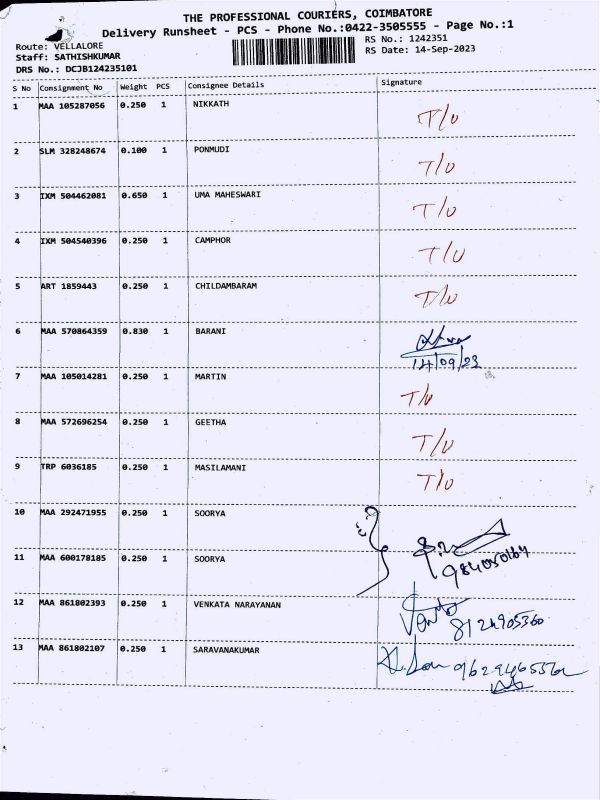 THE PROFESSIONAL COURIERS, COIMBATORE
Delivery Runsheet - PCS - Phone No.:0422-3505555 - Page No.:1
Route: VELLALORE
RS No.: 1242351
Staff: SATHISHKUMAR
RS Date: 14-Sep-2023
DRS No.: DCJB124235101
S No Consignment No Weight PCS Consignee Details Signature
1 MAA 105287056 0.250 1 NIKKATH T/U
2 SLM 328248674 0.100 1 PONMUDI T/U
3 IXM 504462081 0.650 1 UMA MAHESWARI T/U
4 IXM 504540396 0.250 1 CAMPHOR T/U
5 ART 1859443 0.250 1 CHILDAMBARAM T/U
6 MAA 570864359 0.830 1 BARANI 14/09/23
7 MAA 105014281 0.250 1 MARTIN T/U
8 MAA 572696254 0.250 1 GEETHA T/U
9 TRP 6036185 0.250 1 MASILAMANI T/U
10 MAA 292471955 0.250 1 SOORYA
11 MAA 600178185 0.250 1 SOORYA
12 MAA 861802393 0.250 1 VENKATA NARAYANAN 8124905360
13 MAA 861802107 0.250 1 SARAVANAKUMAR